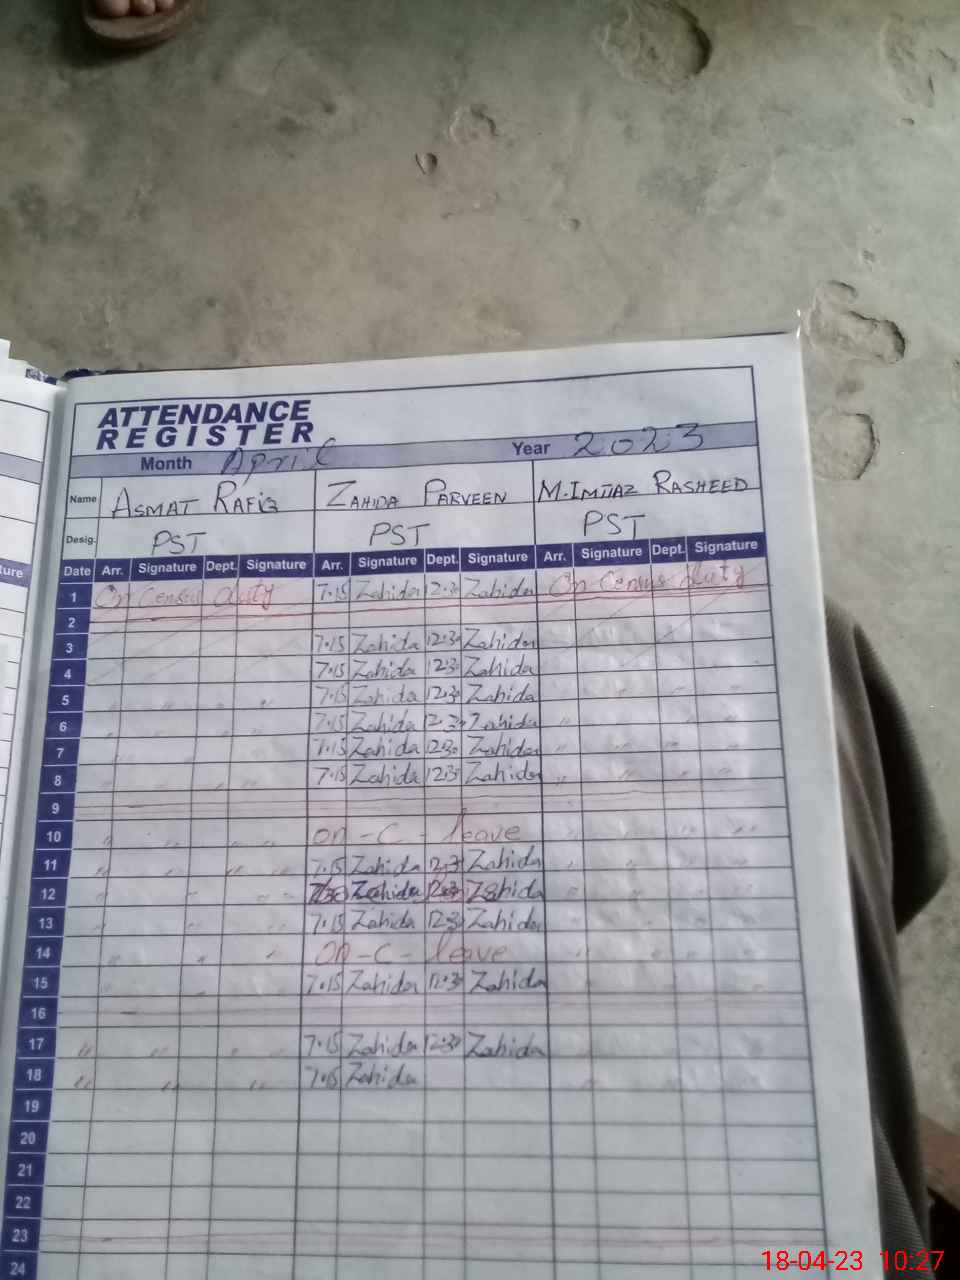 ATTENDANCE
REGISTER
Month April Year 2023
Name ASMAT RAFIQ ZAHIDA PARVEEN M. IMTIAZ RASHEED
Desig. PST PST PST
Date Arr. Signature Dept. Signature Arr. Signature Dept. Signature Arr. Signature Dept. Signature
1 On Census duty 7.15 Zahida 12:30 Zahida On Census duty
2
3 7.15 Zahida 12:30 Zahida
4 7.15 Zahida 12:30 Zahida
5 " " " " 7.15 Zahida 12:30 Zahida " " " "
6 " " " " 7.15 Zahida 12:30 Zahida " " " "
7 " " " " 7.15 Zahida 12:30 Zahida " " " "
8 " " " " 7.15 Zahida 12:30 Zahida " " " "
9
10 " " " " on - C - leave " " " "
11 " " " " 7.15 Zahida 12:30 Zahida " " " "
12 " " " " Zahida Zahida " " " "
13 " " " " 7.15 Zahida 12:30 Zahida " " " "
14 " " " " on - C - leave " " " "
15 " " " " 7.15 Zahida 12:30 Zahida " " " "
16
17 " " " " 7.15 Zahida 12:30 Zahida " " " "
18 " " " 7.15 Zahida " "
19
20
21
22
23
24
18-04-23 10:27